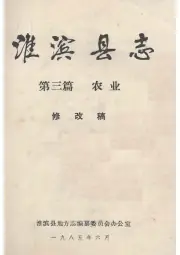 淮滨县志
第三篇 农业
修改稿
淮滨县地方志编纂委员会办公室
一九八五年六月